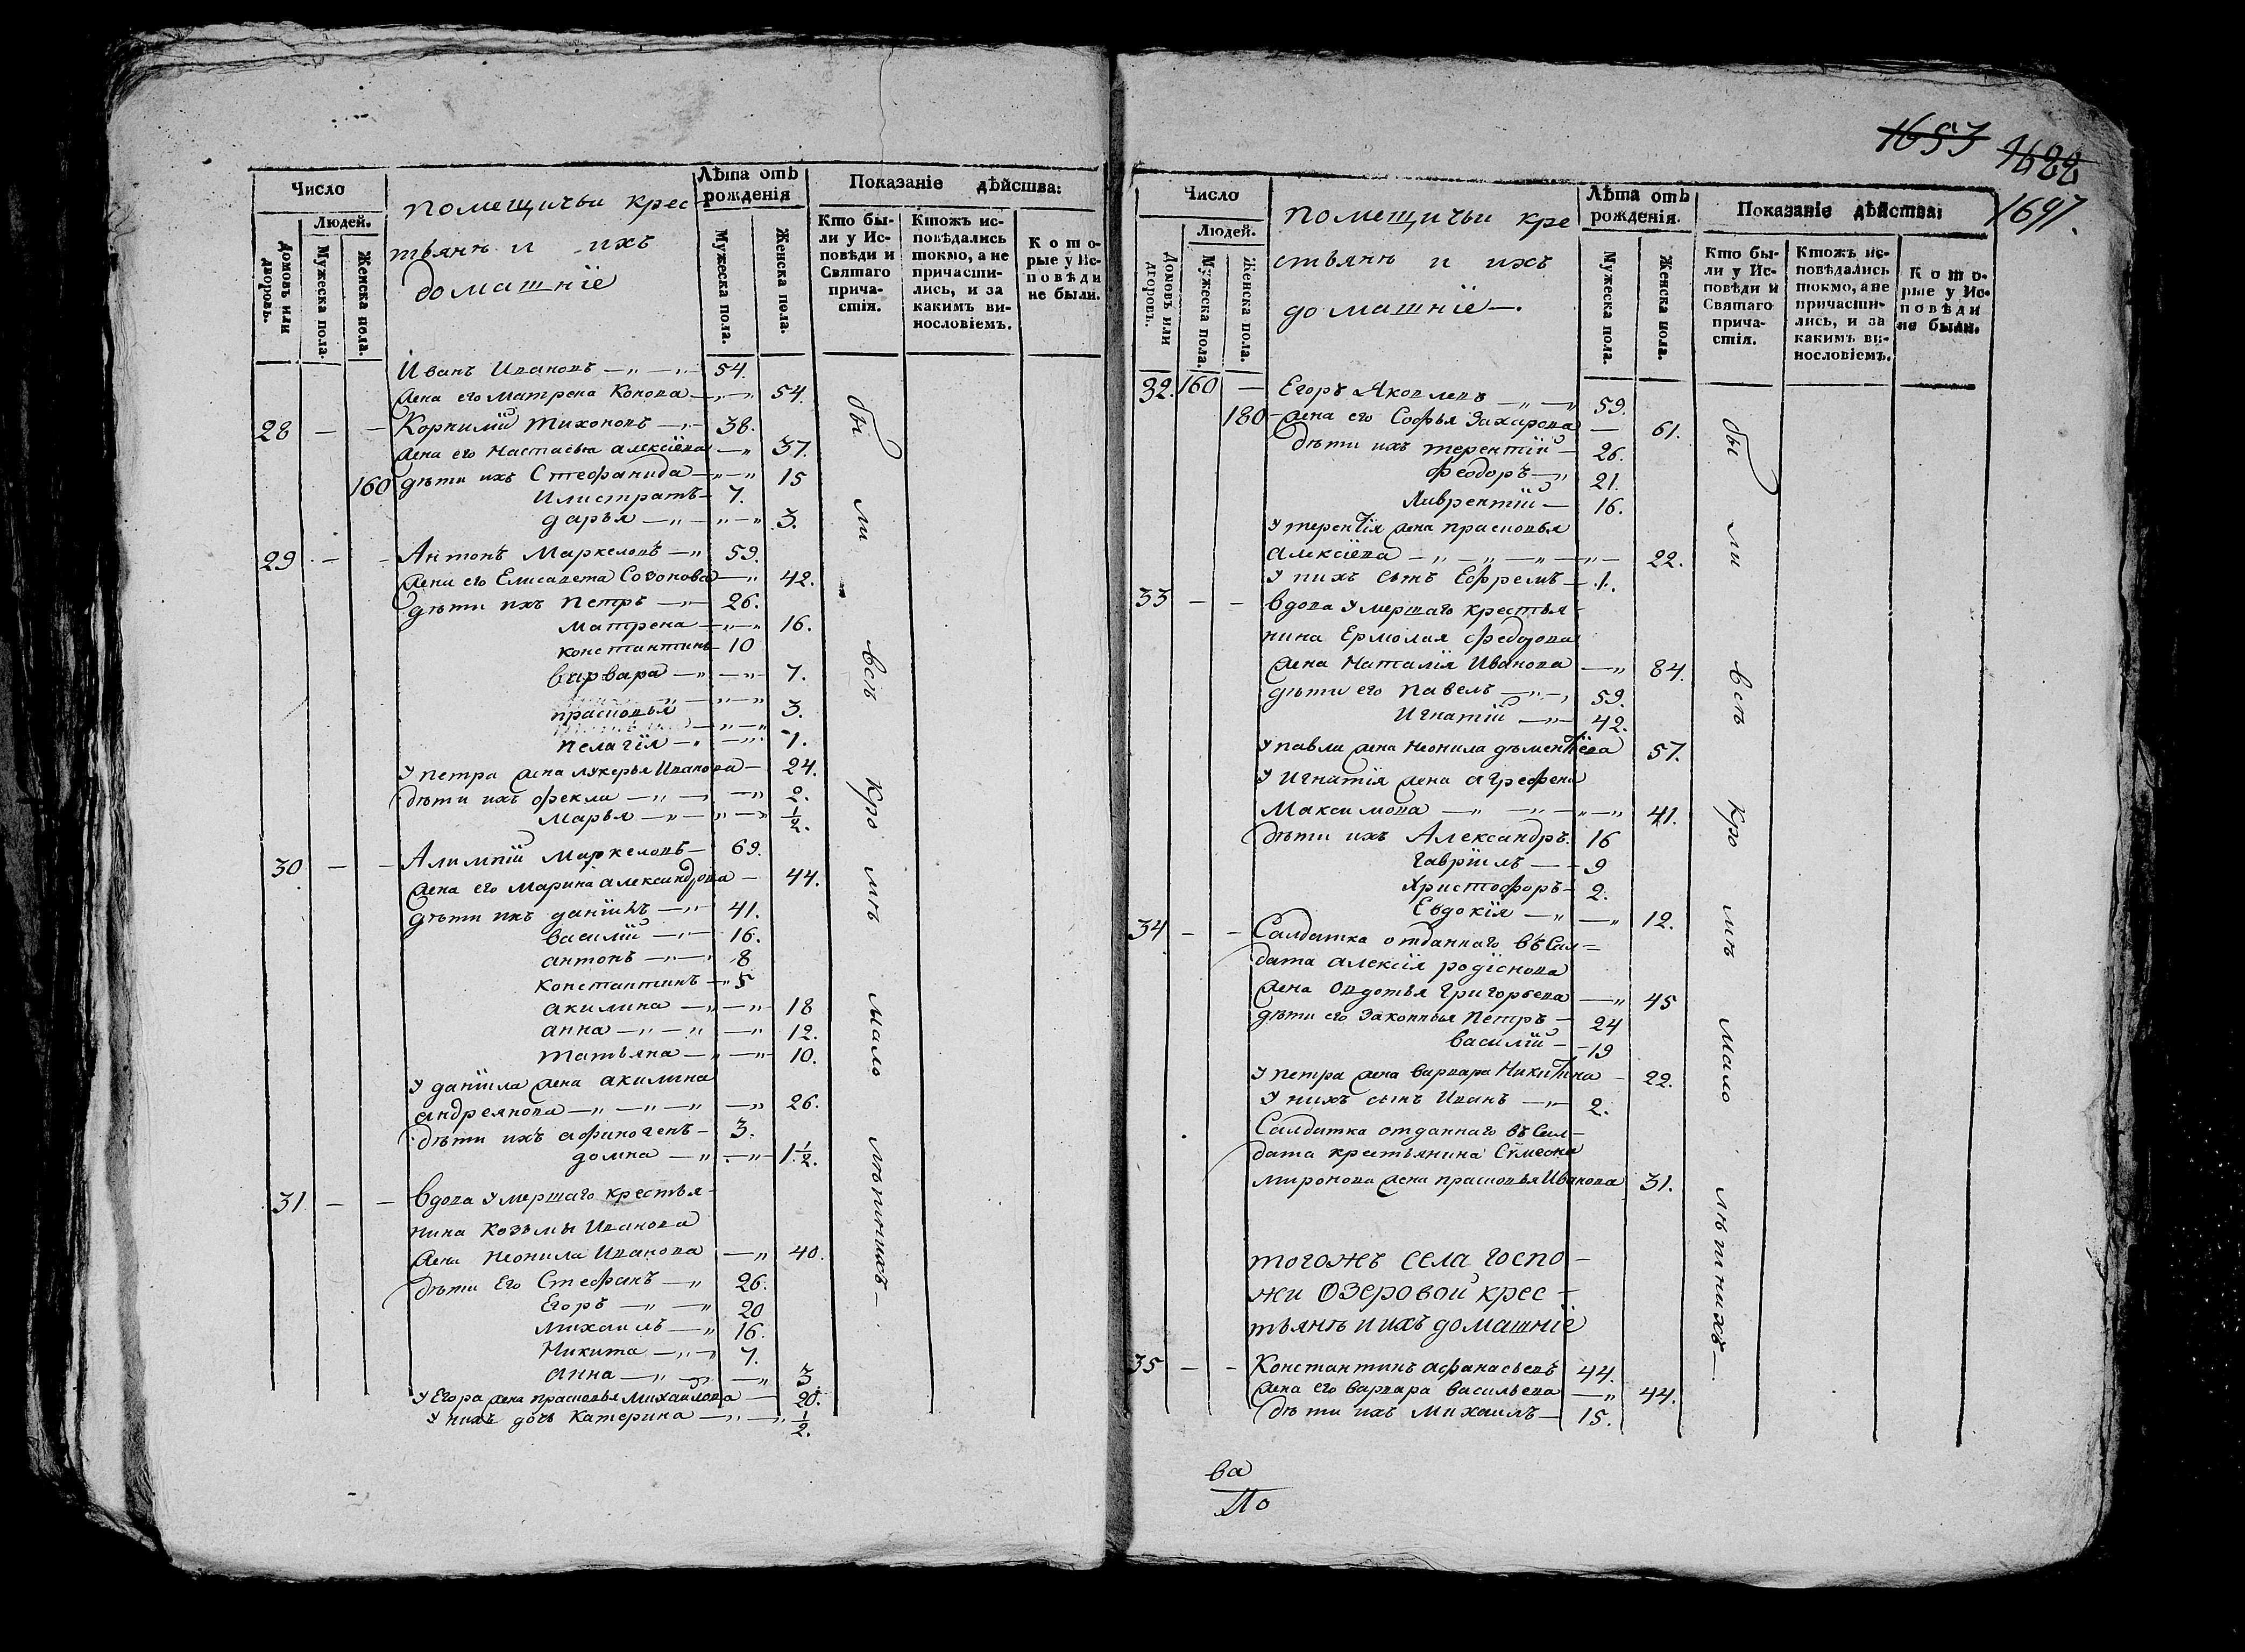 Число
Людей.
Домовъ или дворовъ.
Мужеска пола.
Женска пола.
помещичьи крес-
тьянъ и ихъ
домашніе
Лѣта отъ рожденія
Мужеска пола.
Женска пола.
Показаніе дѣйства:
Кто бы-
ли у Ис-
повѣди и
Святаго
прича-
стія.
Ктожъ ис-
повѣдались
токмо, а не
причасти-
лись, и за
какимъ ви-
нословіемъ.
Кото-
рые у Ис-
повѣди
не были.
Иванъ Ивановъ 54.
жена его Матрена Конова 54.
28 — — Корнилій Тихоновъ 38.
жена его Настасья алексіева 37.
160 дѣти ихъ Стефанида 15
Илистратъ 7.
дарья 3.
29 — — Антонъ Маркеловъ 59.
жена его Елисавета Созонова 42.
дѣти ихъ Петръ 26.
Матрена 16.
константинъ 10
варвара 7.
прасковья 3.
пелагія 1.
у петра жена лукерья Иванова 24.
дѣти ихъ фекла 2.
Марья 1/2.
30 — — Алимпій Маркеловъ 69.
жена его Марина александрова 44.
дѣти ихъ даніилъ 41.
василій 16.
антонъ 8
константинъ 5
акилина 18
анна 12.
татьяна 10.
у даніила жена акилина
андреянова 26.
дѣти ихъ афиногенъ 3.
домна 1 1/2.
31 — — вдова умершаго крестья-
нина Козьмы Иванова
жена Неонила Иванова 40.
дѣти Его Стефанъ 26.
Егоръ 20
михаилъ 16.
Никита 7.
анна 3.
у Егора жена прасковья Михаилова 20.
у нихъ дочь Катерина 1/2.
бы ли всѣ кро мѣ мало лѣтнихъ
1657 1688
1697.
Число
Людей.
Домовъ или дворовъ.
Мужеска пола.
Женска пола.
помещичьи кре
стьянъ и ихъ
домашніе
Лѣта отъ рожденія.
Мужеска пола.
Женска пола.
Показаніе дѣйства:
Кто бы-
ли у Ис-
повѣди и
Святаго
прича-
стія.
Ктожъ ис-
повѣдались
токмо, а не
причасти-
лись, и за
какимъ ви-
нословіемъ.
Кото-
рые у Ис-
повѣди
не были.
32. 160 — Егоръ Яковлевъ 59.
180 жена его Софья Захарова 61.
дѣти ихъ терентій 26.
феодоръ 21.
Лаврентій 16.
у терентія жена прасковья
алексіева 22.
у нихъ сынъ Ефремъ 1.
33 — — вдова умершаго крестья-
нина Ермолая федорова
жена Наталія Иванова 84.
дѣти его павелъ 59.
Игнатій 42.
у павла жена неонила дементіева 57.
у Игнатія жена агрефена
Максимова 41.
дѣти ихъ Александръ 16
гавріилъ 9
христофоръ 2.
Евдокія 12.
34 — — Салдатка отданнаго въ Сал-
дата алексія родіонова
жена овдотья григорьева 45
дѣти его законныя петръ 24
василій 19
у петра жена варвара Никитина 22.
у нихъ сынъ Иванъ 2.
Салдатка отданнаго въ Сал-
дата крестьянина Сѵмеона
миронова жена прасковья Иванова 31.
тогожъ села госпо-
жи Озеровой крес-
тьянъ и ихъ домашніе
35 — — Константинъ афанасьевъ 44.
жена его варвара васильева 44.
дѣти ихъ михаилъ 15.
бы ли всѣ кро мѣ мало лѣтнихъ
ва
По